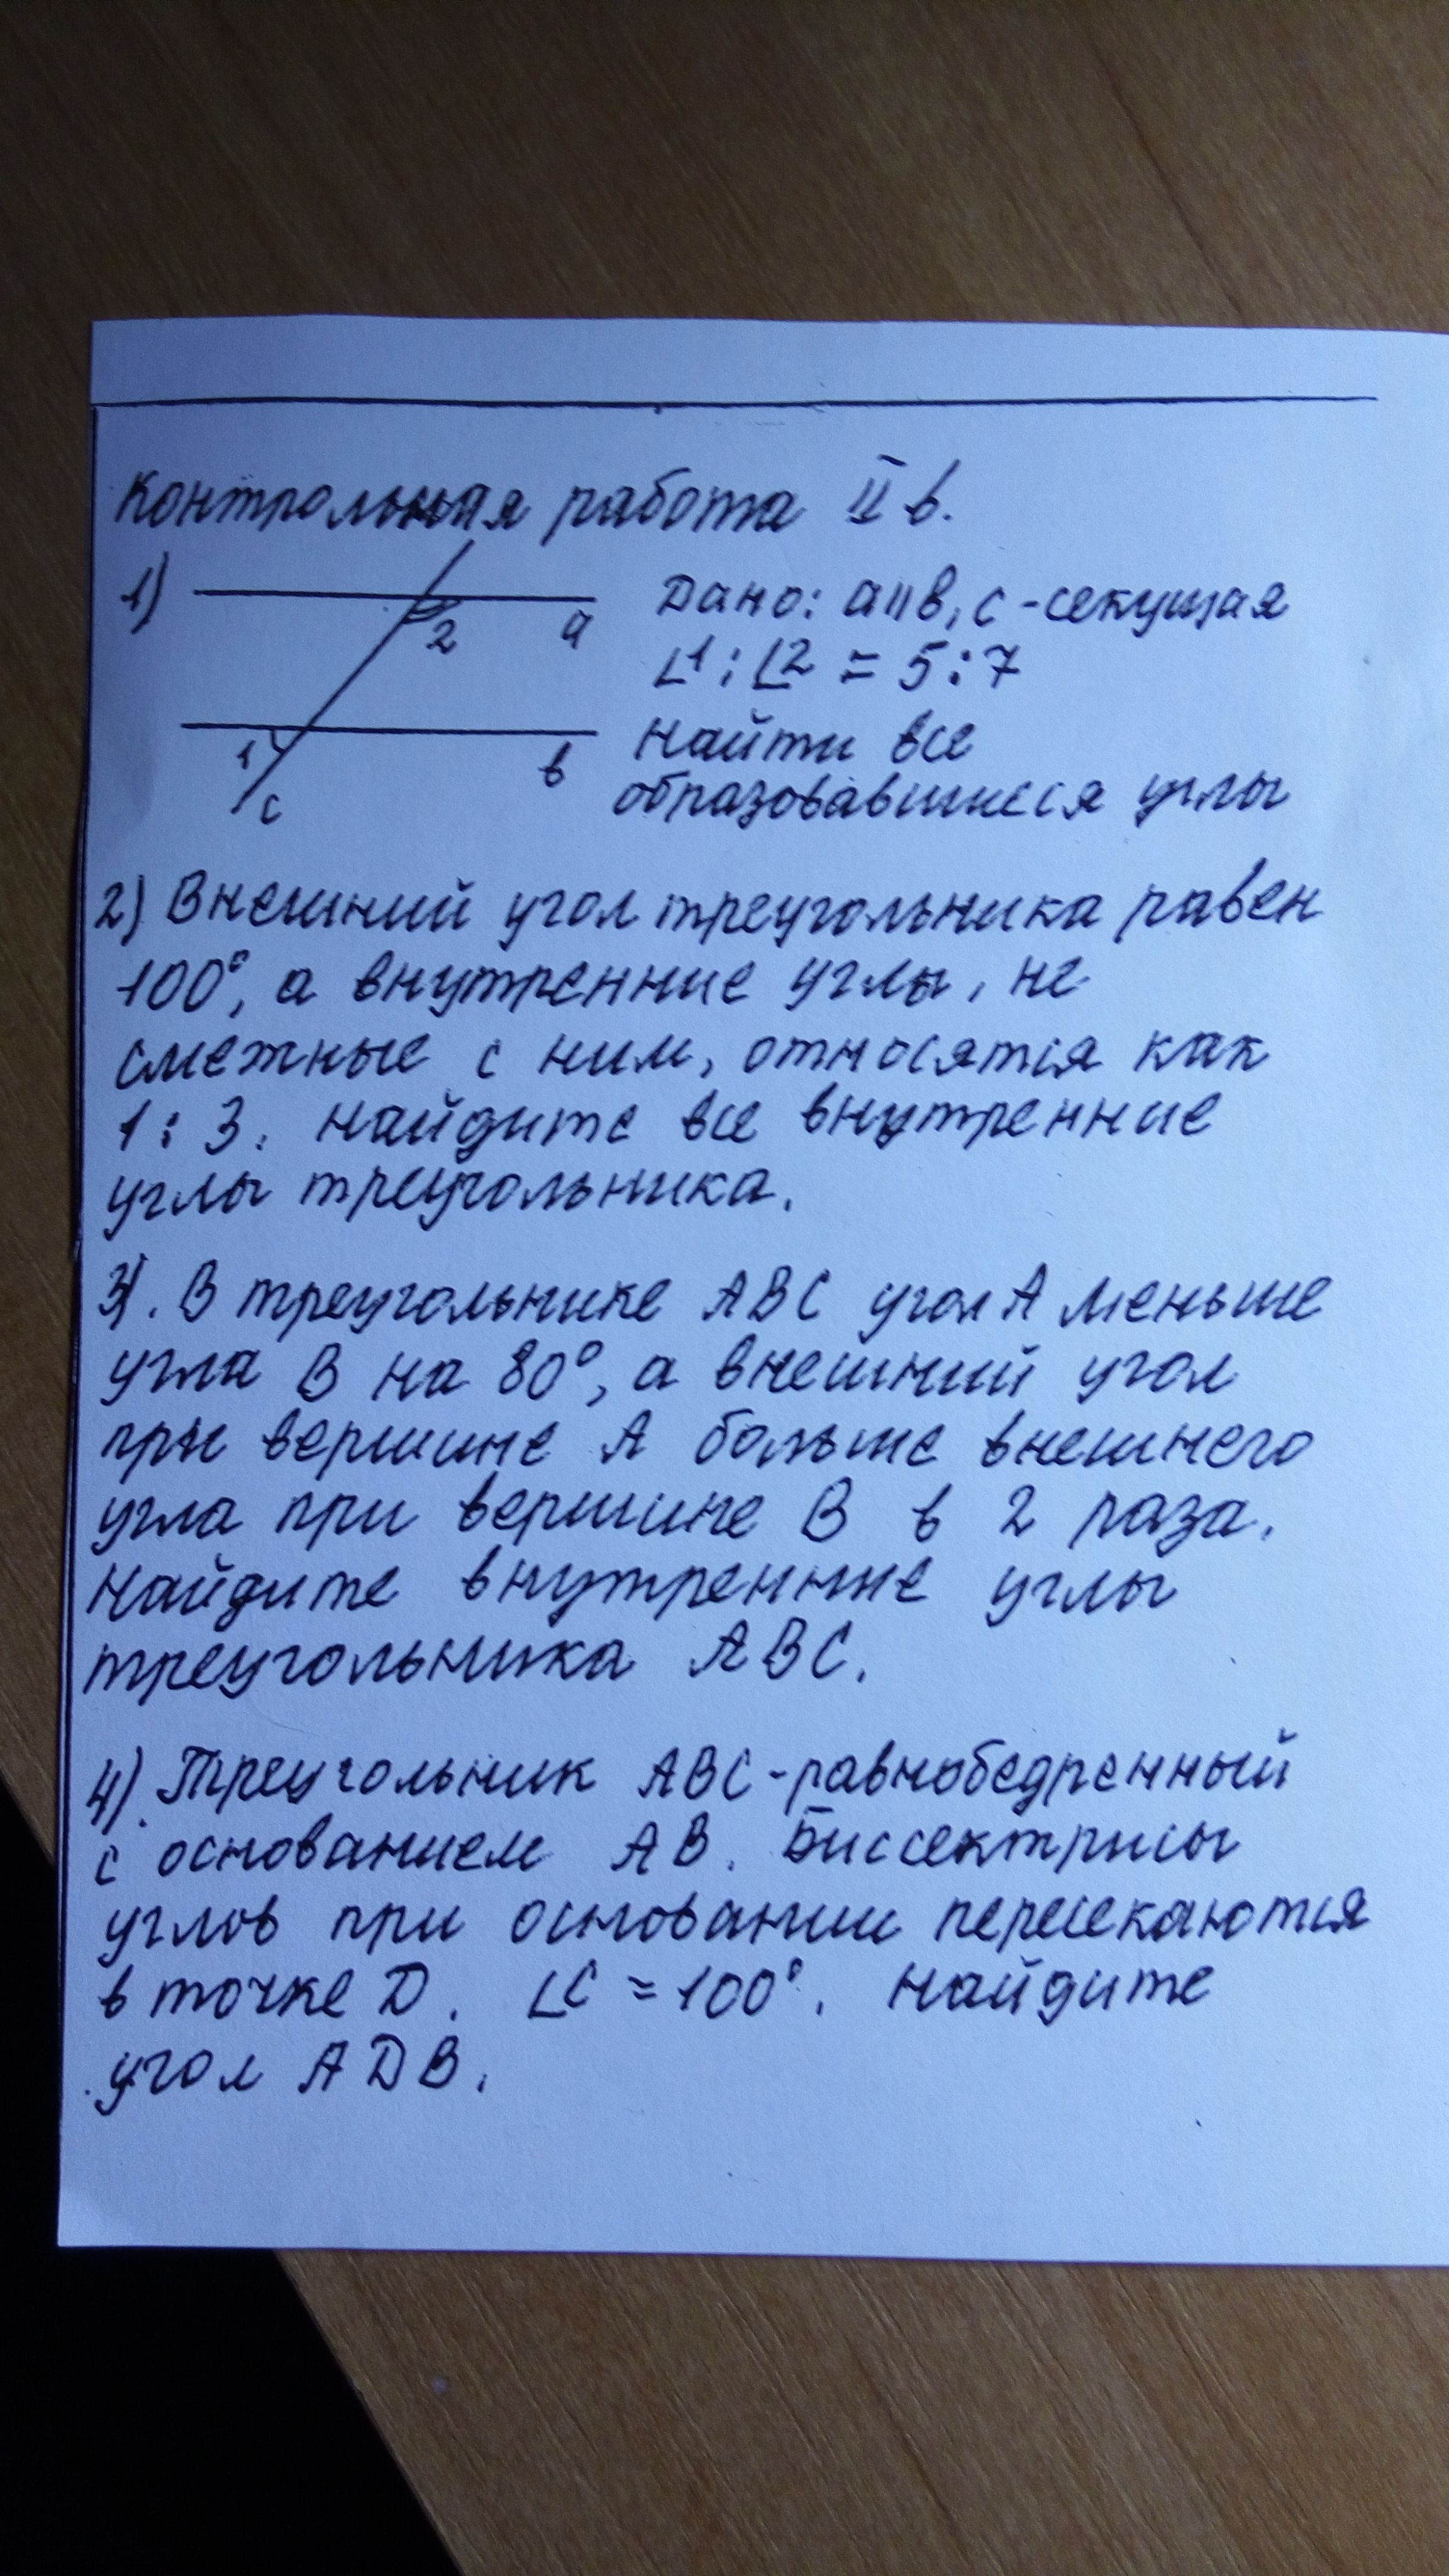 Контрольная работа II в.
1)
2 а
1 в
с
Дано: а॥в, с - секущая
∠1 : ∠2 = 5 : 7
Найти все
образовавшиеся углы
2) Внешний угол треугольника равен
100°, а внутренние углы, не
смежные с ним, относятся как
1 : 3. Найдите все внутренние
углы треугольника.
3). В треугольнике АВС угол А меньше
угла В на 80°, а внешний угол
при вершине А больше внешнего
угла при вершине В в 2 раза.
Найдите внутренние углы
треугольника АВС.
4). Треугольник АВС - равнобедренный
с основанием АВ. Биссектрисы
углов при основании пересекаются
в точке D. ∠C = 100°. Найдите
угол ADB.